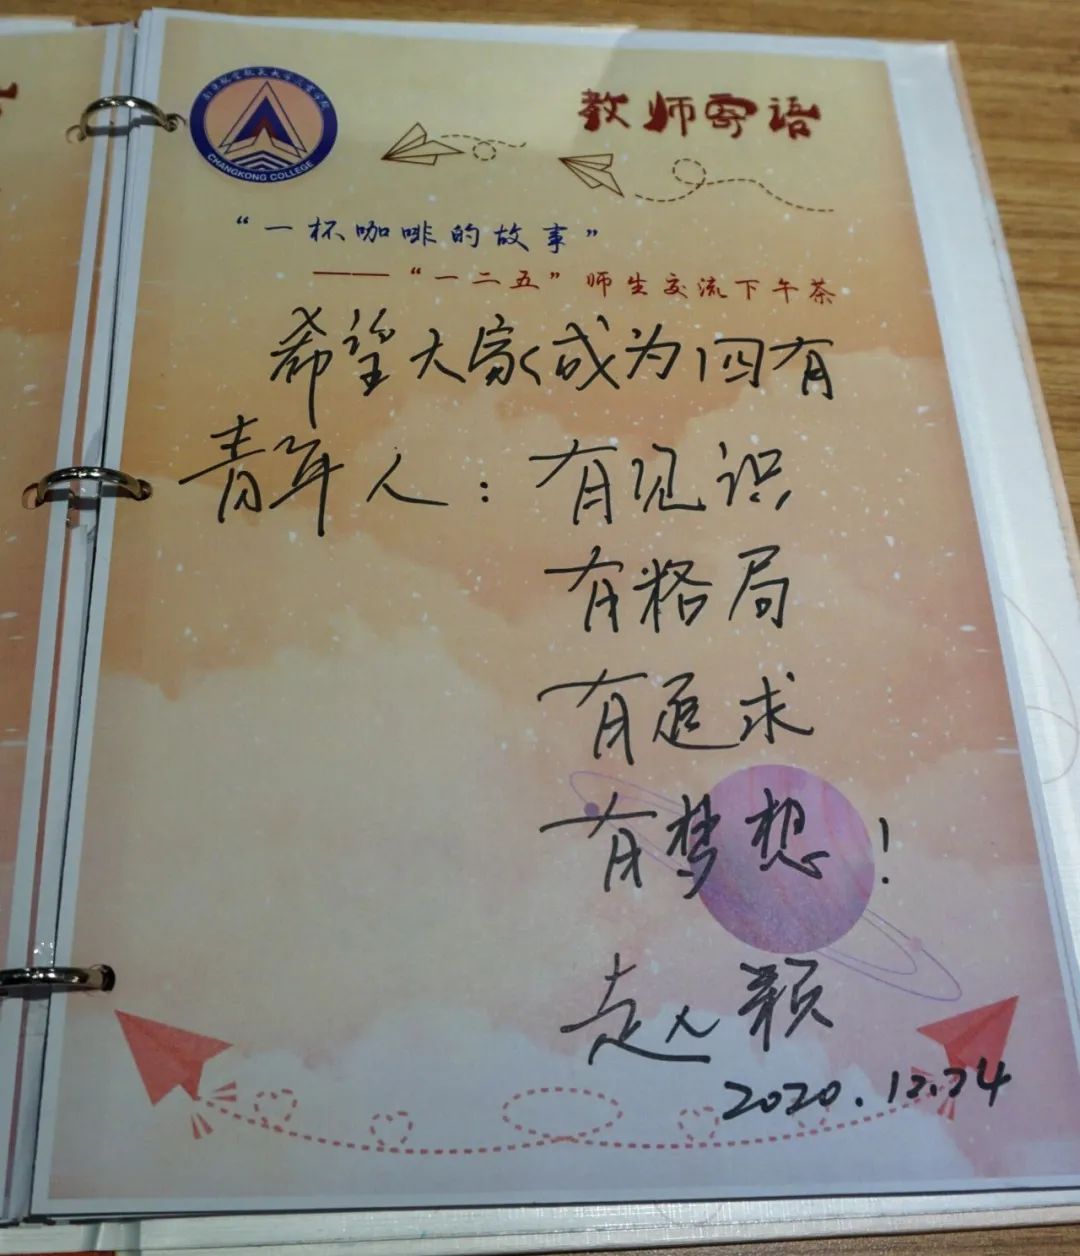 南京航空航天大学长空学院
CHANGKONG COLLEGE
教师寄语
“一杯咖啡的故事”
——“一二五”师生交流下午茶
希望大家成为四有
青年人：有见识
有格局
有追求
有梦想！
赵颖
2020.12.24